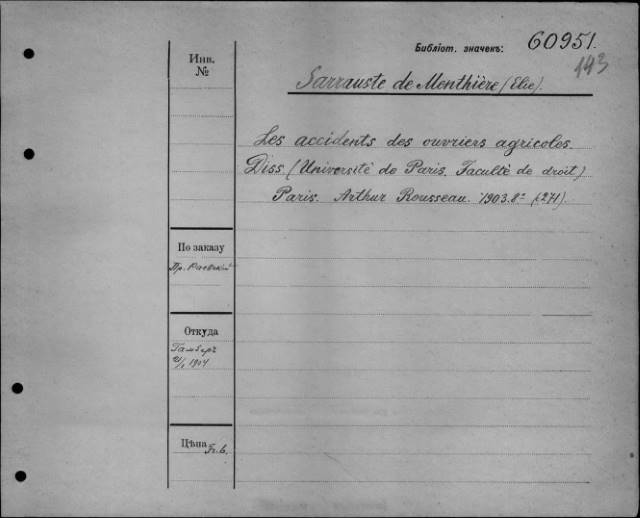 Библіот. значекъ: 60951.
143
Инв.
№
Sarrauste de Menthière (Elie).
Les accidents des ouvriers agricoles.
Diss. (Université de Paris. Faculté de droit)
Paris. Arthur Rousseau. 1903. 8º (271).
По заказу
Пр. Раевскій
Откуда
Гамберъ
1904
Цѣна Fr. 6.